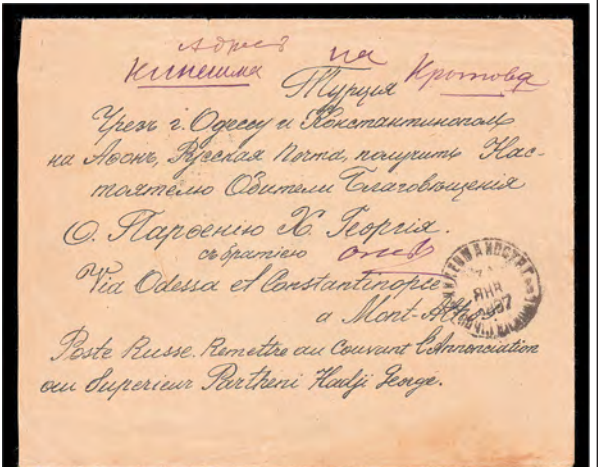 Адресъ на
Кинешма Кротова
Турция
Чрезъ г. Одессу и Константинополь
на Аѳонъ, Русская Почта, получить Нас-
тоятелю Обители Благовѣщенія
О. Парѳенію Х. Георгія.
съ братіею
Via Odessa et Constantinople
a Mont-
Poste Russe. Remettre au Couvant l'Annonciation
au Superieur Partheni Hadji George.
КИНЕШМА
ЯНВ
1897